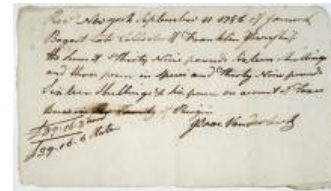 Rec'd New York September 11 1786 of Jacob
Bogert late Collector of Franklin Township
the sum of thirty Nine pounds Sixteen shillings
and three pence in specie and thirty Nine pounds
Sixteen Shillings & six pence on account of Taxes
County of Bergen
£39.16.3
£39.16.6 Note
Isaac Vanderbeek